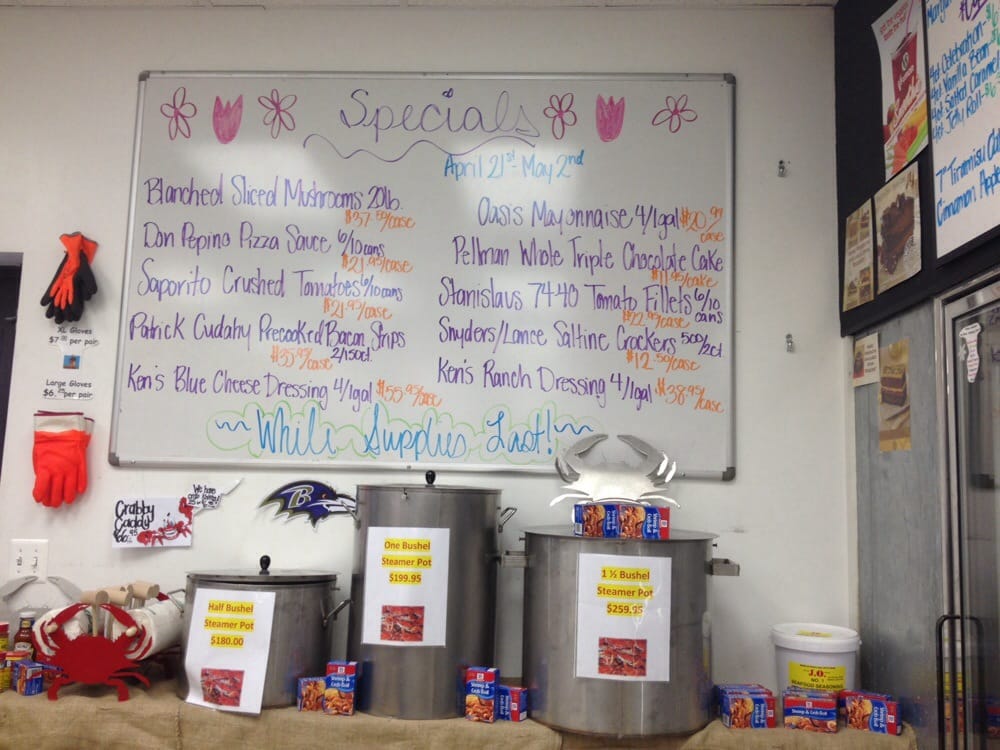 Specials
April 21st - May 2nd
Blanched Sliced Mushrooms 20lb.
$37.50/case
Don Pepino Pizza Sauce 6/10 cans
$21.95/case
Saporito Crushed Tomatoes 6/10 cans
$21.95/case
Patrick Cudahy Precooked Bacon Strips
$35.95/case 2/150ct.
Ken's Blue Cheese Dressing 4/1gal $55.95/case
Oasis Mayonnaise 4/1gal $20.97
case
Pellman Whole Triple Chocolate Cake
$11.95/cake
Stanislaus 74-40 Tomato Fillets 6/10
cans
$22.95/case
Snyders/Lance Saltine Crackers 500/2ct.
$12.50/case
Ken's Ranch Dressing 4/1gal $38.95/case
While Supplies Last!
XL Gloves
$7.00 per pair
Large Gloves
$6. per pair
Crabby
Caddy
We have
B
Half Bushel
Steamer Pot
$180.00
One Bushel
Steamer Pot
$199.95
1 ½ Bushel
Steamer Pot
$259.95
Shrimp &
Crab Boil
Shrimp &
Crab Boil
Shrimp &
Crab Boil
Shrimp &
Crab Boil
J.O.
NO. 1
SEAFOOD SEASONING
Celebration
Vanilla Bean
Salted Caramel
Jelly Roll
7" Tiramisu
Cinnamon Apple